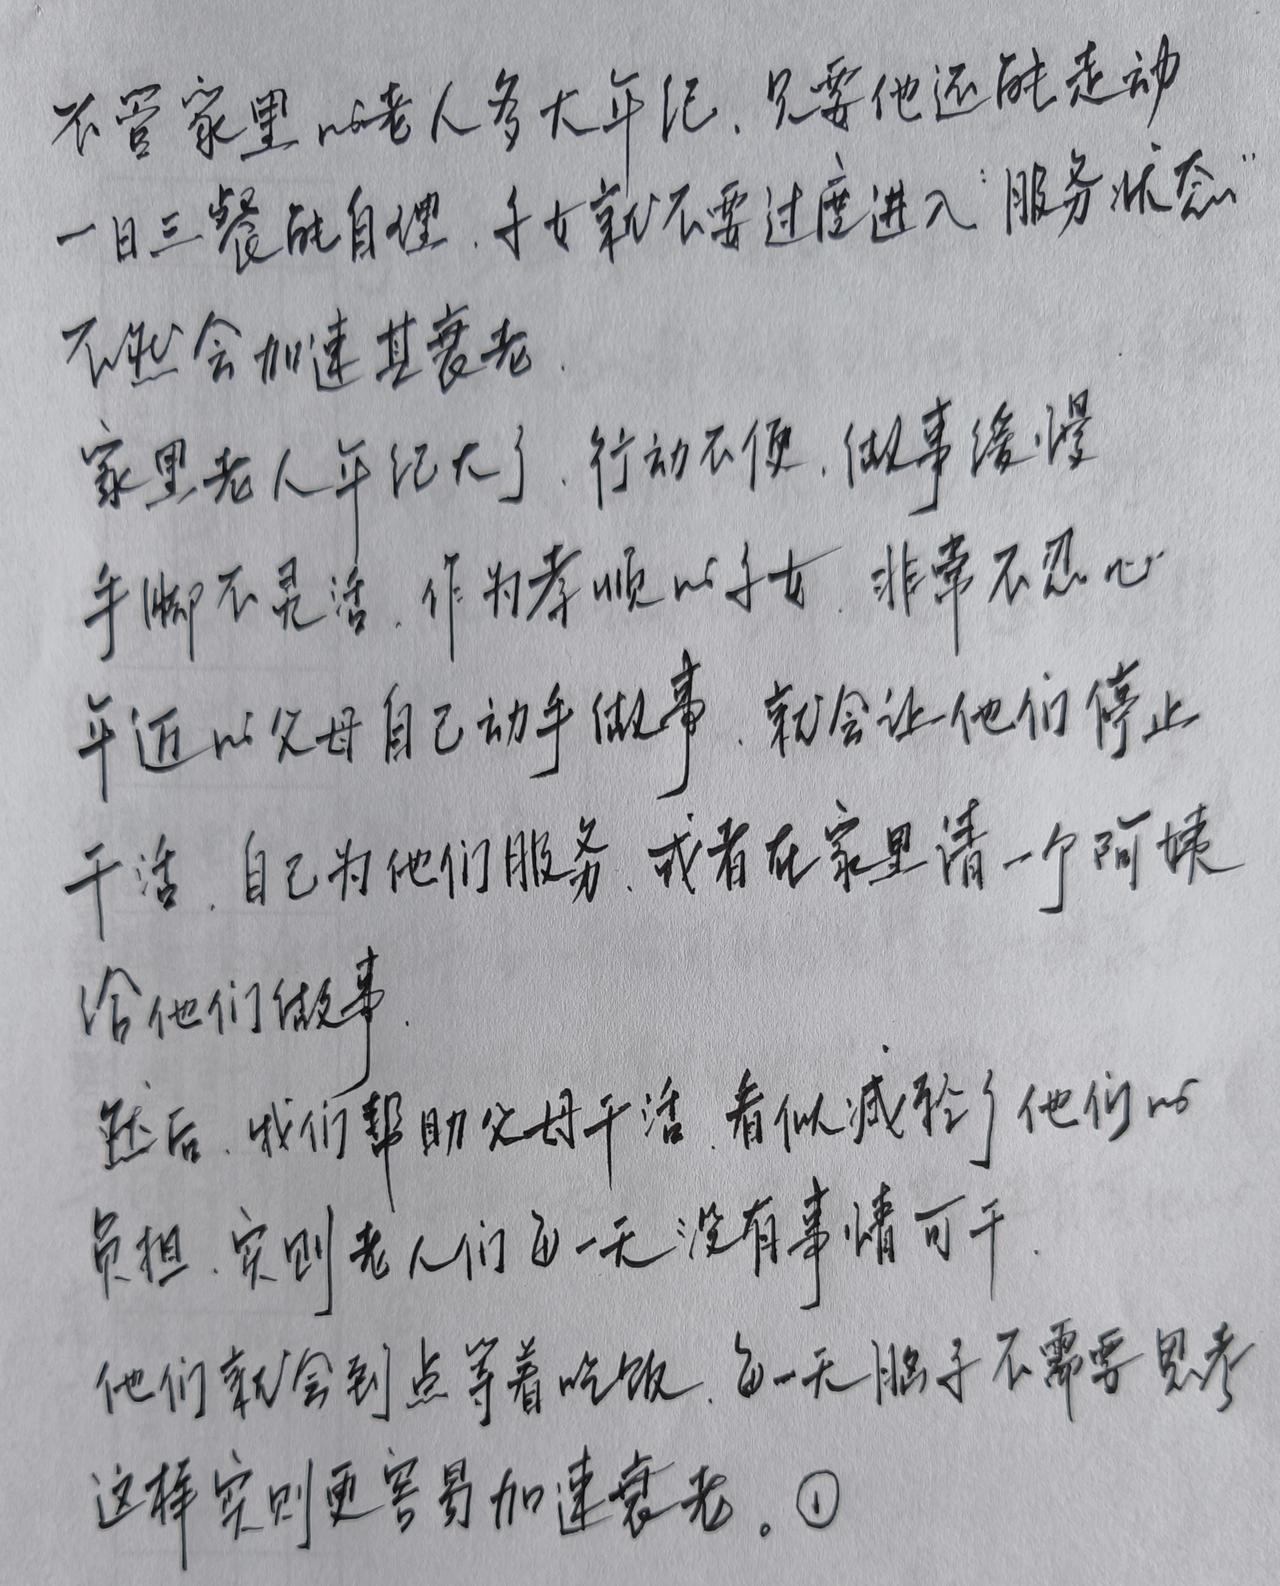 不管家里的老人多大年纪、只要他还能走动
一日三餐能自理、子女就不要过度进入“服务状态”
不然会加速其衰老.
家里老人年纪大了、行动不便、做事缓慢
手脚不灵活、作为孝顺的子女、非常不忍心
年迈的父母自己动手做事、就会让他们停止
干活、自己为他们服务、或者在家里请一个阿姨
给他们做事.
然后、我们帮助父母干活、看似减轻了他们的
负担、实则老人们每一天没有事情可干.
他们就会到点等着吃饭、每一天脑子不需要思考
这样实则更容易加速衰老。①